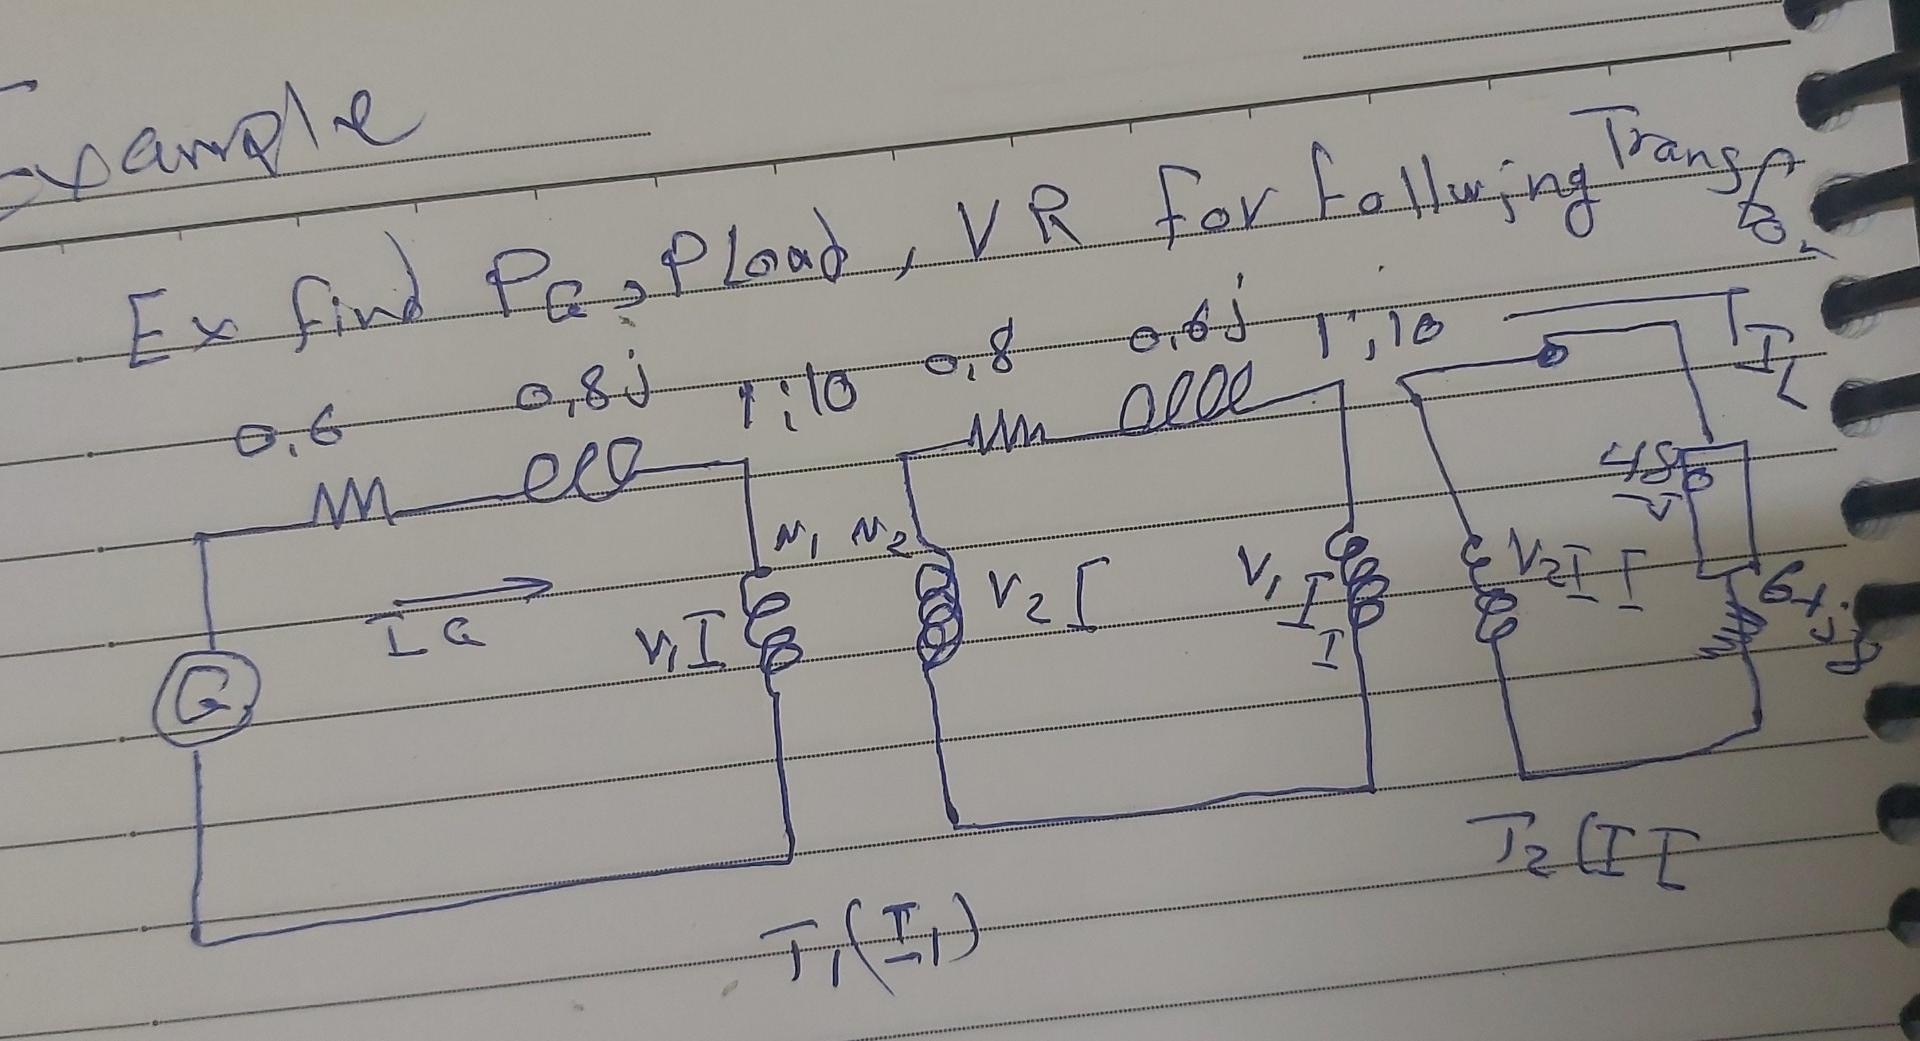 Example
Ex find PG, PLoad, VR for Following Transfo.
0,6 0,8j 1:10 0,8 0,6j 1:10 IL
IG N1 N2 V1 I V2 I V1 II V2 II 480 V 6+j8
G
T1(I1) T2(II